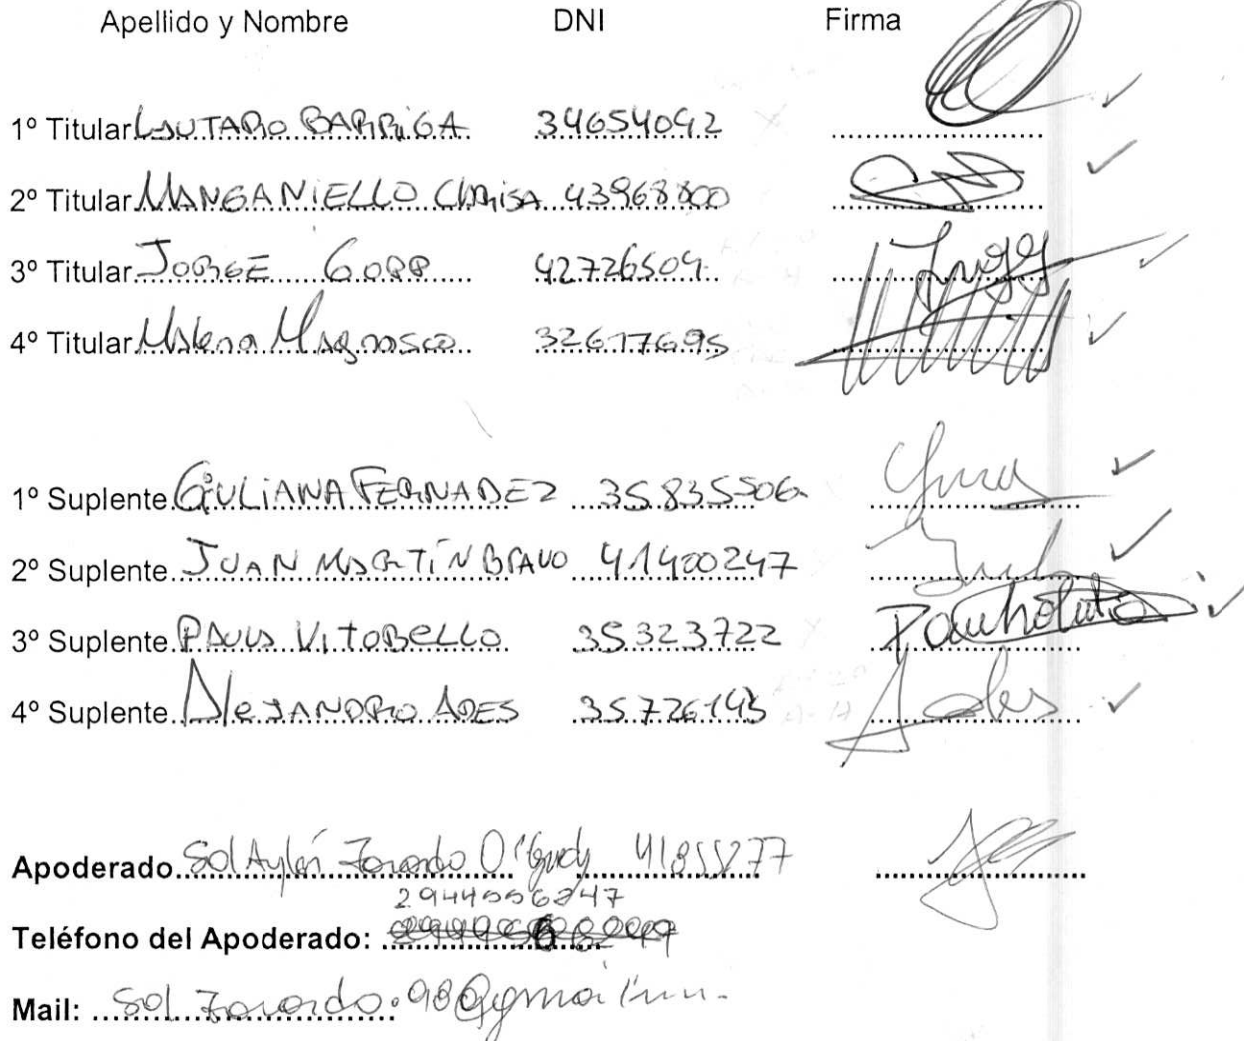 Apellido y Nombre DNI Firma
1º Titular LAUTARO BARRIGA 34654042
2º Titular MANGANIELLO CLARISA 43968800
3º Titular JORGE GORR 42726504
4º Titular Malena Magnasco 32617695
1º Suplente GIULIANA FERNADEZ 35.835506
2º Suplente JUAN MARTÍN BRAVO 41400247
3º Suplente PAULA VITOBELLO 35323722
4º Suplente AleJANDRO ADES 35726143
Apoderado Sol Aylén 41855277
Teléfono del Apoderado:
Mail: